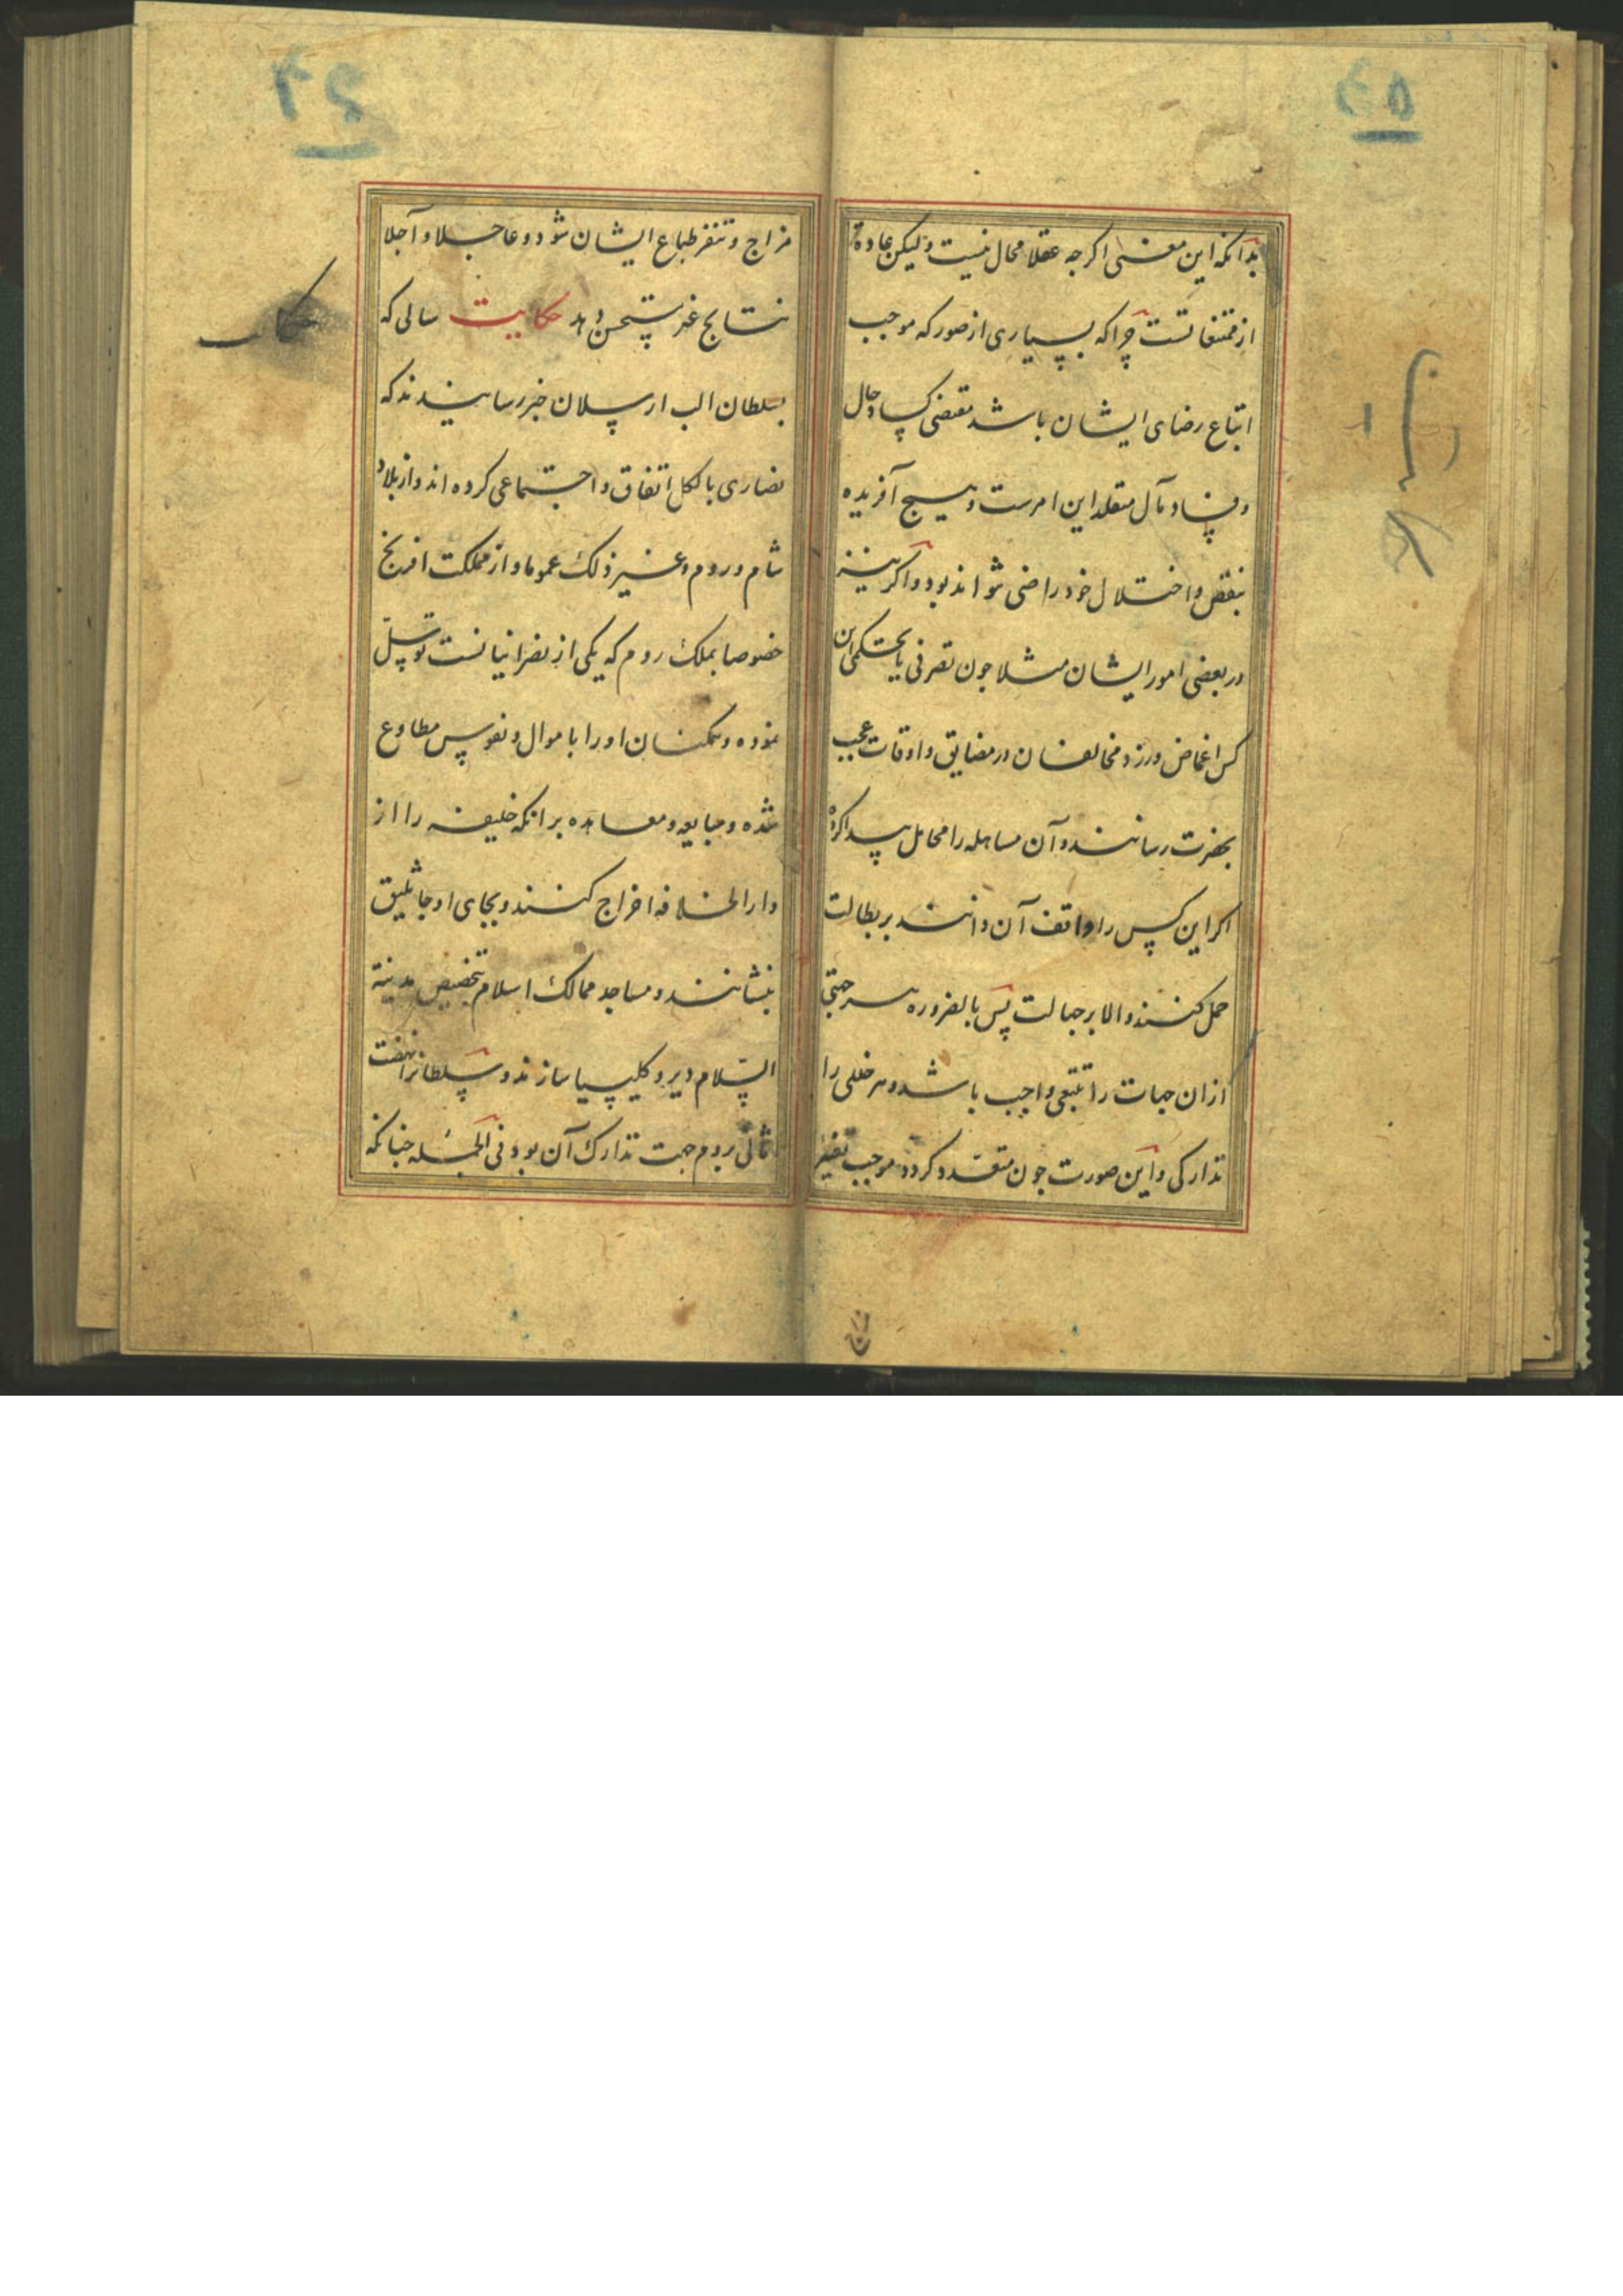 ۲۵
بدانکه این معنی اکرچه عقلا محال نیست ولیکن عادة
از ممتنعاتست چرا که بسیاری از صور که موجب
اتباع رضای ایشان باشد مقتضی کساد حال
و فساد مآل متقلد این امرست و هیچ آفریده
بنقص و اختلال خود راضی نتواند بود و اکر نیز
در بعضی امور ایشان مثلا جون تصرفی یا تحکمی این
کس اغماض ورزد مخالفان در مضایق و اوقات عجب
بحضرت رسانند و آن مساهله را محامل پیدا کرده
اکر این کس را واقف آن دانند بر بطالت
حمل کنند و الا بر جهالت پس بالضروره هر جهتی
ازان جهات را تتبعی واجب باشد و هر خللی را
تدارکی و این صورت جون متعدد کردد موجب تغیر
۲۶
مزاج و تنفر طباع ایشان شود و عاجلا و آجلا
نتایج غیر مستحسن دهد حکایت سالی که
بسلطان الب ارسلان خبر رسانیدند که
نصاری بالکل اتفاق و اجتماعی کرده اند و از بلاد
شام و روم و غیر ذلک عموما و از مملکت افرنج
خصوصا بملک روم که یکی از نصرانیانست توسل
نموده و همکنان او را باموال و نفوس مطاوع
شده و مبایعه و معاهده برانکه خلیفه را از
دار الخلافه اخراج کنند و بجای او جاثلیق
بنشانند و مساجد ممالک اسلام تخصیص مدینة
السلام دیر و کلیسیا سازند و سلطانرا نهضت
ثانی بروم جهت تدارک آن بود فی الجمله جنانکه
حکایت